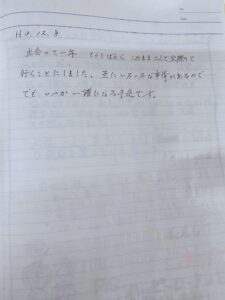 H.9.12.8
出会って一年 もうしばらく このまま二人で交際して
行くことにしました。互にいろいろな事情があるので
でも、いつか一緒になる予定です。